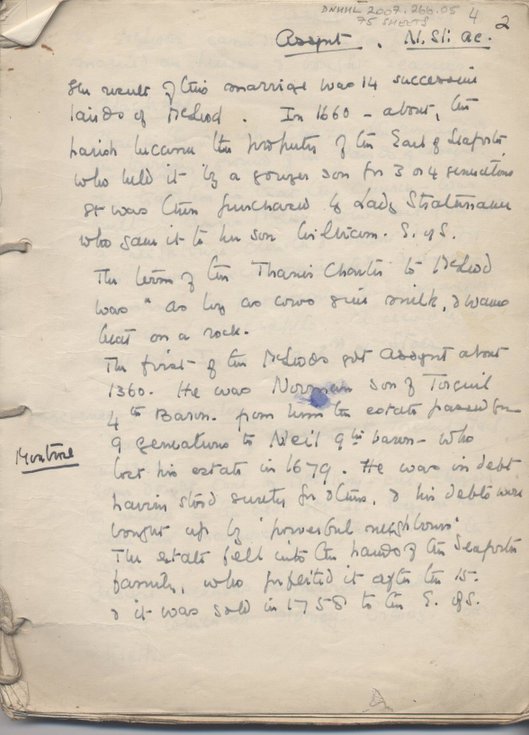 DNHHL 2007.266.05 4 2
75 SHEETS
Assynt. N. St: Ac.
The result of this marriage was 14 successive
lairds of McLeod. In 1660 - about, the
parish became the property of the Earl of Seaforth
who held it by a younger son for 3 or 4 generations
It was then purchased by Lady Strathnaver
who gave it to her son William. E. of S.
The term of the Thane's Charter to McLeod
was "as long as cows give milk, & waves
beat on a rock.
The first of the McLeods got Assynt about
1360. He was Norman son of Torcuil
4th Baron. from him the estate passed
9 generations to Neil 9th baron - who
Montrose
lost his estate in 1679. He was in debt
having stood surety for others, & his debts were
bought up by 'powerful neighbours'
The estate fell into the hands of the Seaforth
family, who forfeited it after the 15.
& it was sold in 1758 to the E. of S.